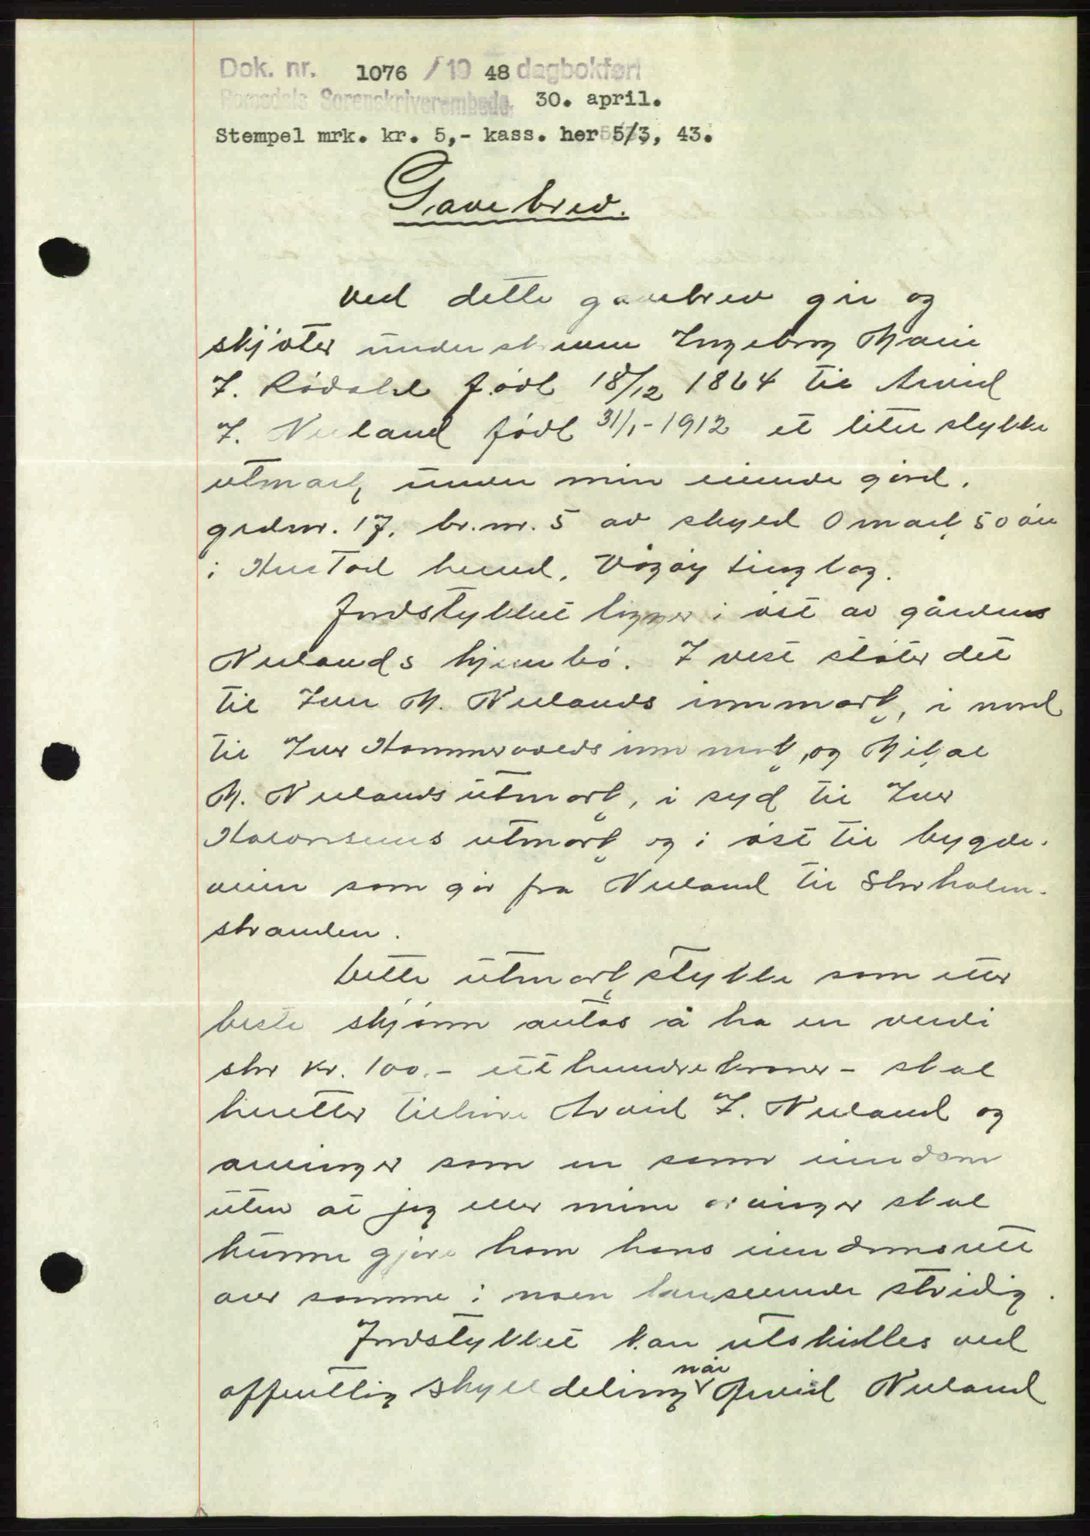 Dok. nr. 1076 / 19 48 dagbokført
Romsdals Sorenskriverembede. 30. april.
Stempel mrk. kr. 5,- kass. her 5/3, 43.
Gavebrev.
Ved dette gavebrev gir og
skjøter under Ingeborg Marie
J. Rødal født 18/12 1864 til Arvid
J. Neland født 31/1-1912 et lite stykke
utmark under min eiende gård.
grdnr. 17. br.nr. 5 av skyld 0 mark 50 øre
i Hustad herred, Vågøy tinglag.
Jordstykket ligger i øst av gårdens
Nelands hjembø. I vest støter det
til Iver M. Nelands innmark, i nord
til Iver innmark, og Mikal
M. Nelands utmark, i syd til Iver
utmark og i øst til bygde-
veien som går fra Neland til Storholm-
stranden.
Dette utmarkstykke som etter
beste skjønn antas å ha en verdi
stor kr. 100.- ett hundre kroner - skal
heretter tilhøre Arvid J. Neland og
arvinger som en sann eiendom
uten at jeg eller mine arvinger skal
kunne gjøre ham hans eiendomsrett
over samme i noen henseende stridig.
Jordstykket kan utskilles ved
offentlig skylddeling når Arvid Neland